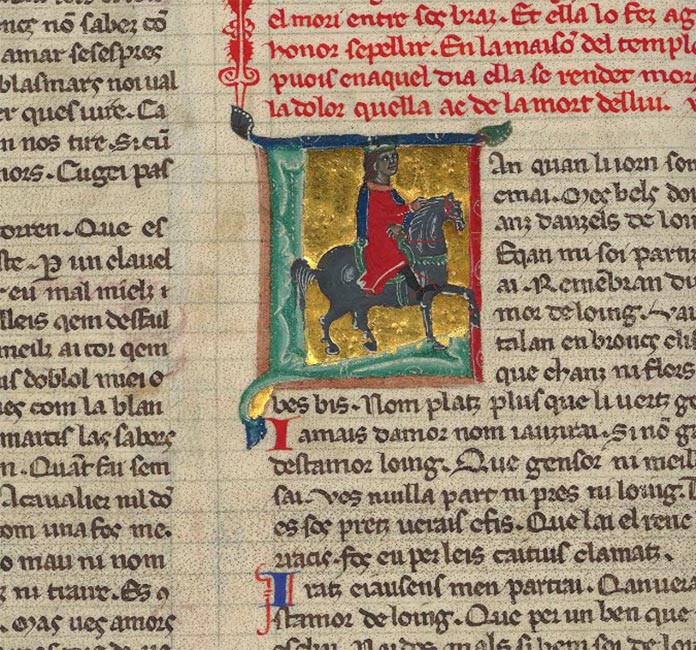 nõ saber cõ
amar sesespres
blasmars noi ual
er ques uire. Ca
nos tire. Si cũ
mors. Cugei pas
torren. Que es
ste. P un clauel
eu mal mielz i
lleis qem
meilz ai cor qem
doblol miei o
com la blan
martis las sabors
n. Quãt fai sem
A caualier nil dõ
com una fos me.
o mau ni nom
ni traire. Es q
Mas ues amors
el mori entre sos braz. Et ella lo fez
honor sepellir. En la maisõ del templ
puois en aquel dia ella se rendet mor
la dolor quella ac de la mort de llui.
LAn quan li iorn son
emai. Mes bels do
anz dauzels de loi
Eqan mi soi partiz
ai. Remẽbran du
mor de loing. Vau
talan en broncs cli
que chanz ni flors
bes bis. Nom platz plus que li uertz ge
Iamais damor nom iauzirai. Si nõ ga
destamor loing. Que gensor ni meil
sai. Vos nuilla part ni pres ni loing.
es sos pretz uerais e fis. Que lai el renc
rracis. fos eu per leis caitius clamatz.
Iratz e iausens men partrai.
stamor de loing. Que per un ben que